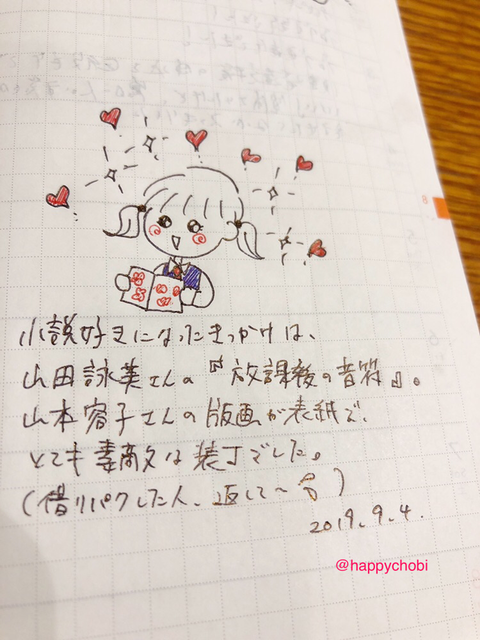 小説好きになったきっかけは、
山田詠美さんの『放課後の音符』。
山本容子さんの版画が表紙で、
とても素敵な装丁でした。
(借りパクした人、返して〜)
2019.9.4.
@happychobi